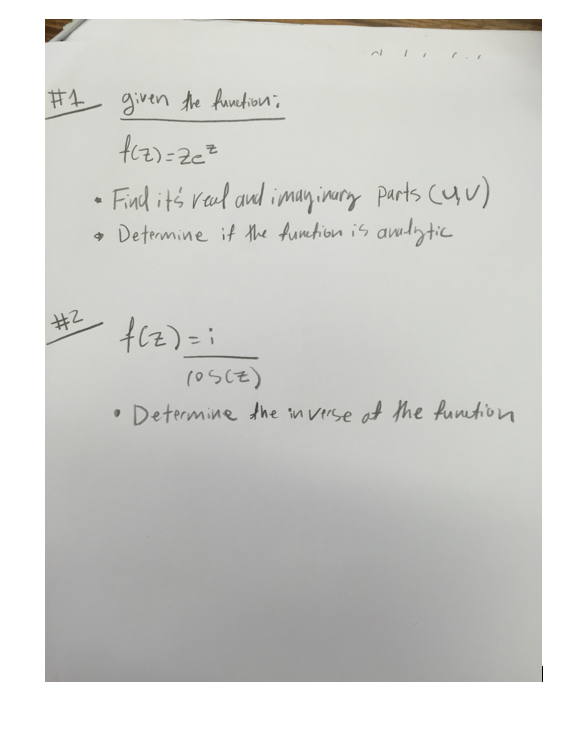 #1 given the function:
f(z)=ze^z
• Find it's real and imaginary parts (u,v)
• Determine if the function is analytic
#2
f(z) = i
cos(z)
• Determine the inverse of the function